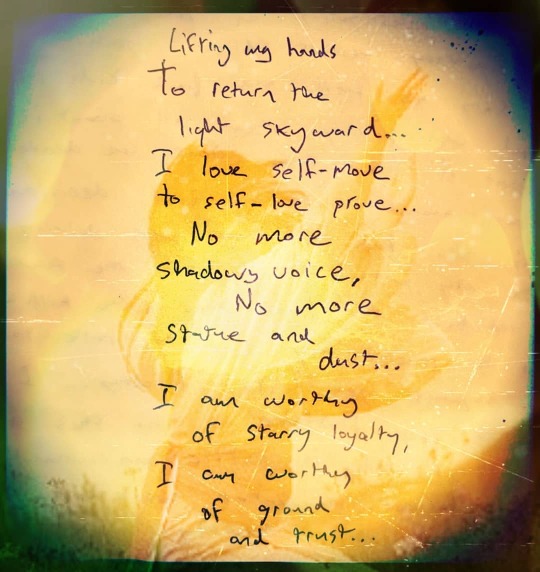 Lifting my hands
To return the
light skyward...
I love self-move
to self-love prove...
No more
shadowy voice,
No more
statue and
dust...
I am worthy
of starry loyalty,
I am worthy
of ground
and trust...